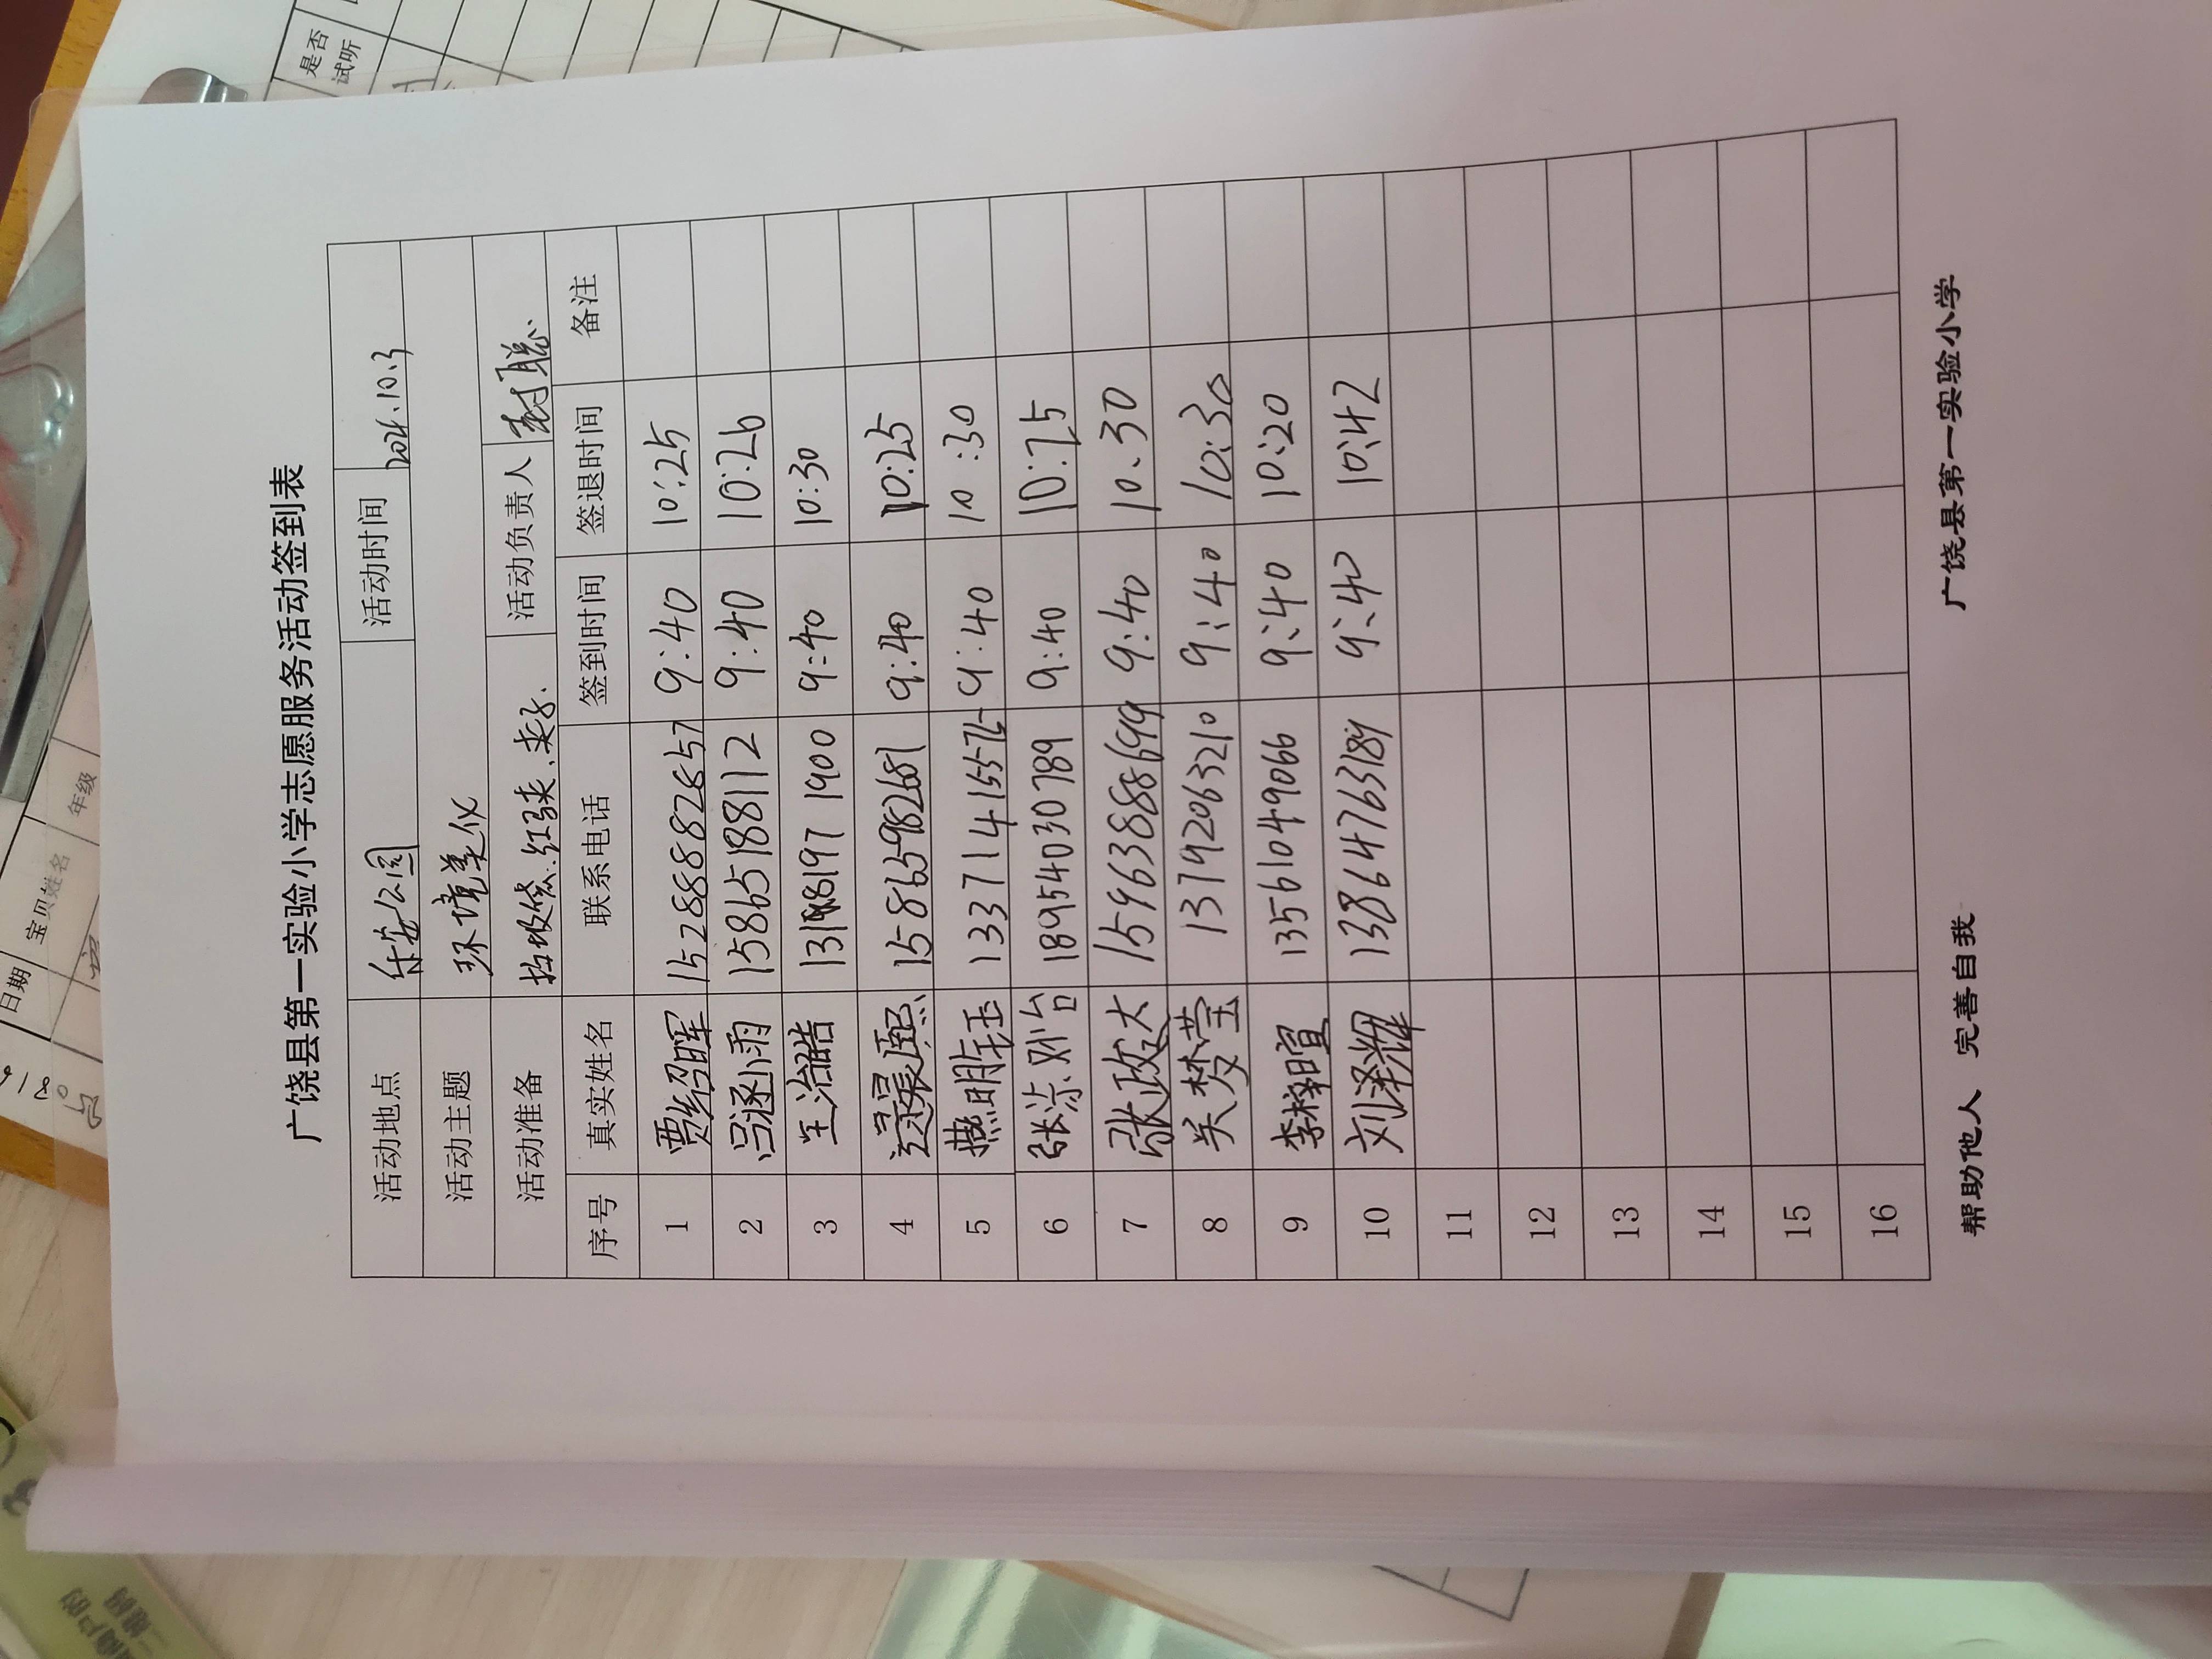 广饶县第一实验小学志愿服务活动签到表
活动地点 乐安公园 活动时间 2021.10.3
活动主题 环境美化
活动准备 垃圾袋.红马夹.夹子. 活动负责人
序号 真实姓名 联系电话 签到时间 签退时间 备注
1 贾绍晖 15288882857 9:40 10:25
2 吕涵雨 15865188112 9:40 10:26
3 王浩皓 9:40 10:30
4 晨熙 15865982681 9:40 10:25
5 燕明钰 13371415575 9:40 10:30
6 18954030789 9:40 10:25
7 张政大 15963888699 9:40 10.30
8 关梦莹 13792063210 9:40 10:30
9 李梓暄 13561049066 9:40 10:20
10 刘泽耀 13864763189 9:40 10:42
11
12
13
14
15
16
帮助他人 完善自我 广饶县第一实验小学
是否
试听
日期
宝贝姓名
年级